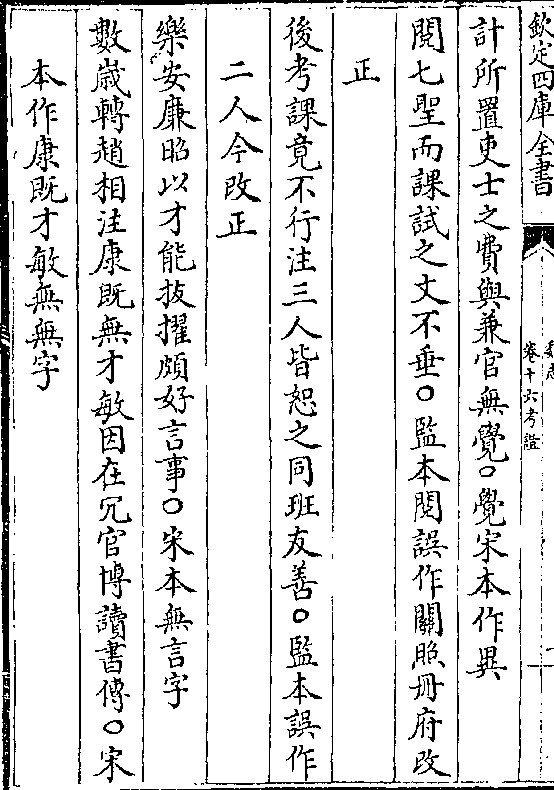 欽定四庫全書
魏志
卷十六考證
計所置吏士之費與兼官無覺○覺宋本作異
閱七聖而課試之文不垂○監本閱誤作關照冊府改
正
後考課竟不行注三人皆恕之同班友善○監本誤作
二人今改正
樂安廉昭以才能拔擢頗好言事○宋本無言字
數歲轉趙相注康既無才敏因在冗官博讀書傳○宋
本作康既才敏無無字